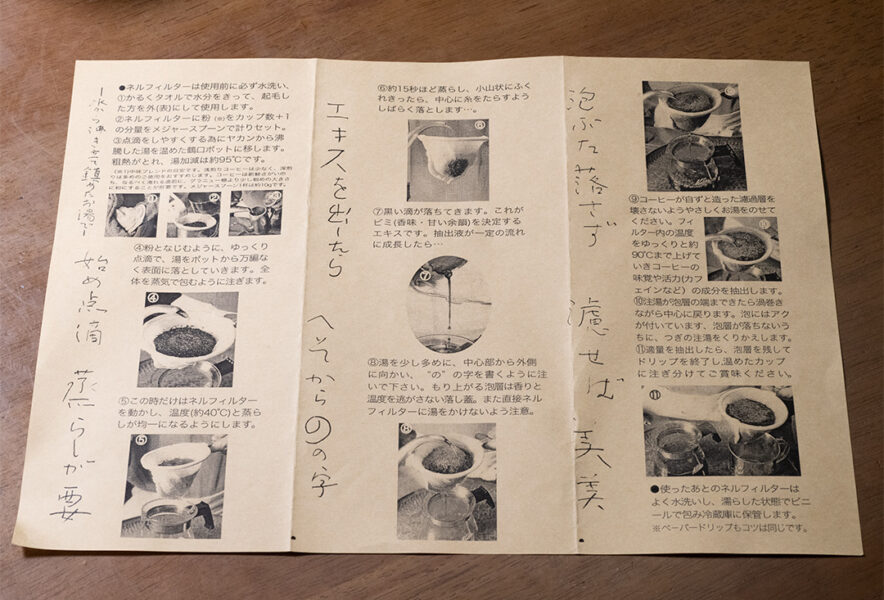 ●ネルフィルターは使用前に必ず水洗い、
①かるくタオルで水分をきって、起毛し
た方を外(表)にして使用します。
②ネルフィルターに粉(※)をカップ数+1
の分量をメジャースプーンで計りセット。
③点滴をしやすくする為にヤカンから沸
騰した湯を温めた鶴口ポットに移します。
粗熱がとれ、湯加減は約95℃です。
①
②
③
④粉となじむように、ゆっくり
点滴で、湯をポットから万編な
く表面に落としていきます。全
体を蒸気で包むように注ぎます。
④
⑤この時だけはネルフィルター
を動かし、温度(約40℃)と蒸ら
しが均一になるようにします。
⑤
お湯で 始め点滴 蒸らしが要
⑥約15秒ほど蒸らし、小山状にふく
れきったら、中心に糸をたらすよう
しばらく落とします…。
⑥
⑦黒い滴が落ちてきます。これが
ビミ(香味・甘い余韻)を決定する
エキスです。抽出液が一定の流れ
に成長したら…
⑦
⑧湯を少し多めに、中心部から外側
に向かい、“の”の字を書くように注
いで下さい。もり上がる泡層は香りと
温度を逃がさない落し蓋。また直接ネル
フィルターに湯をかけないよう注意。
⑧
エキスを出したら へそからのの字
⑨コーヒーが自ずと造った濾過層を
壊さないようやさしくお湯をのせて
ください。フィ
ルター内の温度
をゆっくりと約
90℃まで上げて
いきコーヒーの
味覚や活力(カフ
ェインなど)の成分を抽出します。
⑩
⑩注湯が泡層の端まできたら渦巻き
ながら中心に戻ります。泡にはアク
が付いています、泡層が落ちないう
ちに、つぎの注湯をくりかえします。
⑪適量を抽出したら、泡層を残して
ドリップを終了し、温めたカップ
に注ぎ分けてご賞味ください。
⑪
●使ったあとのネルフィルターは
よく水洗いし、濡らした状態でビニ
ールで包み冷蔵庫に保管します。
※ペーパードリップもコツは同じです。
泡ぶた落さず 濾せば 美